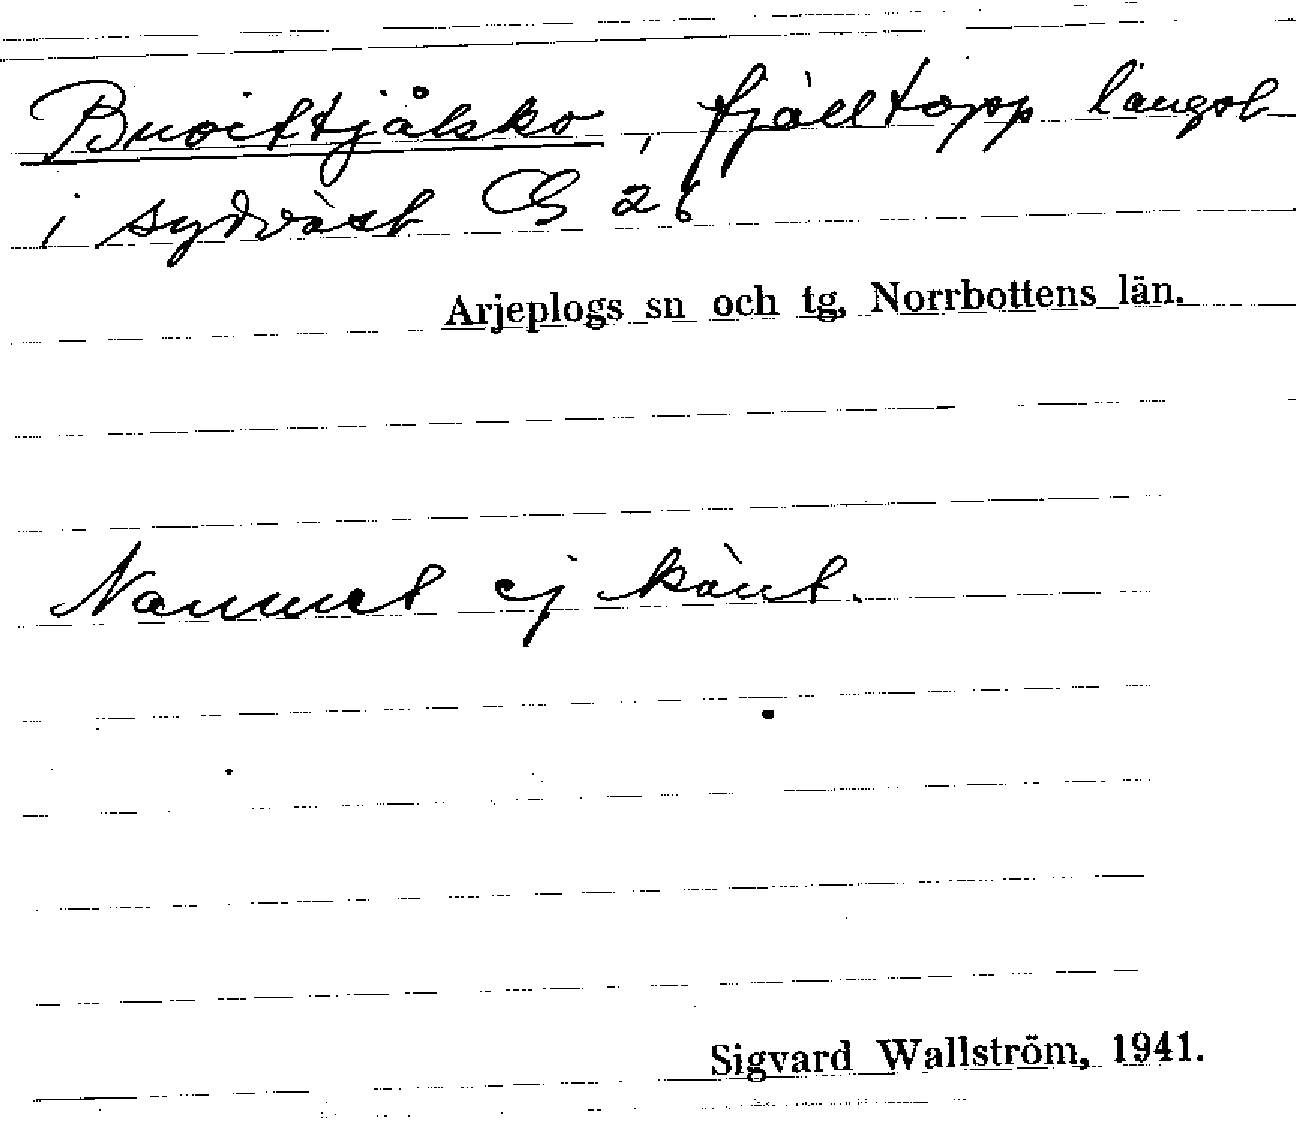 Buoittjålsko, fjälltopp längst
i sydväst G 26
Arjeplogs sn och tg, Norrbottens län.
Namnet ej känt.
Sigvard Wallström, 1941.